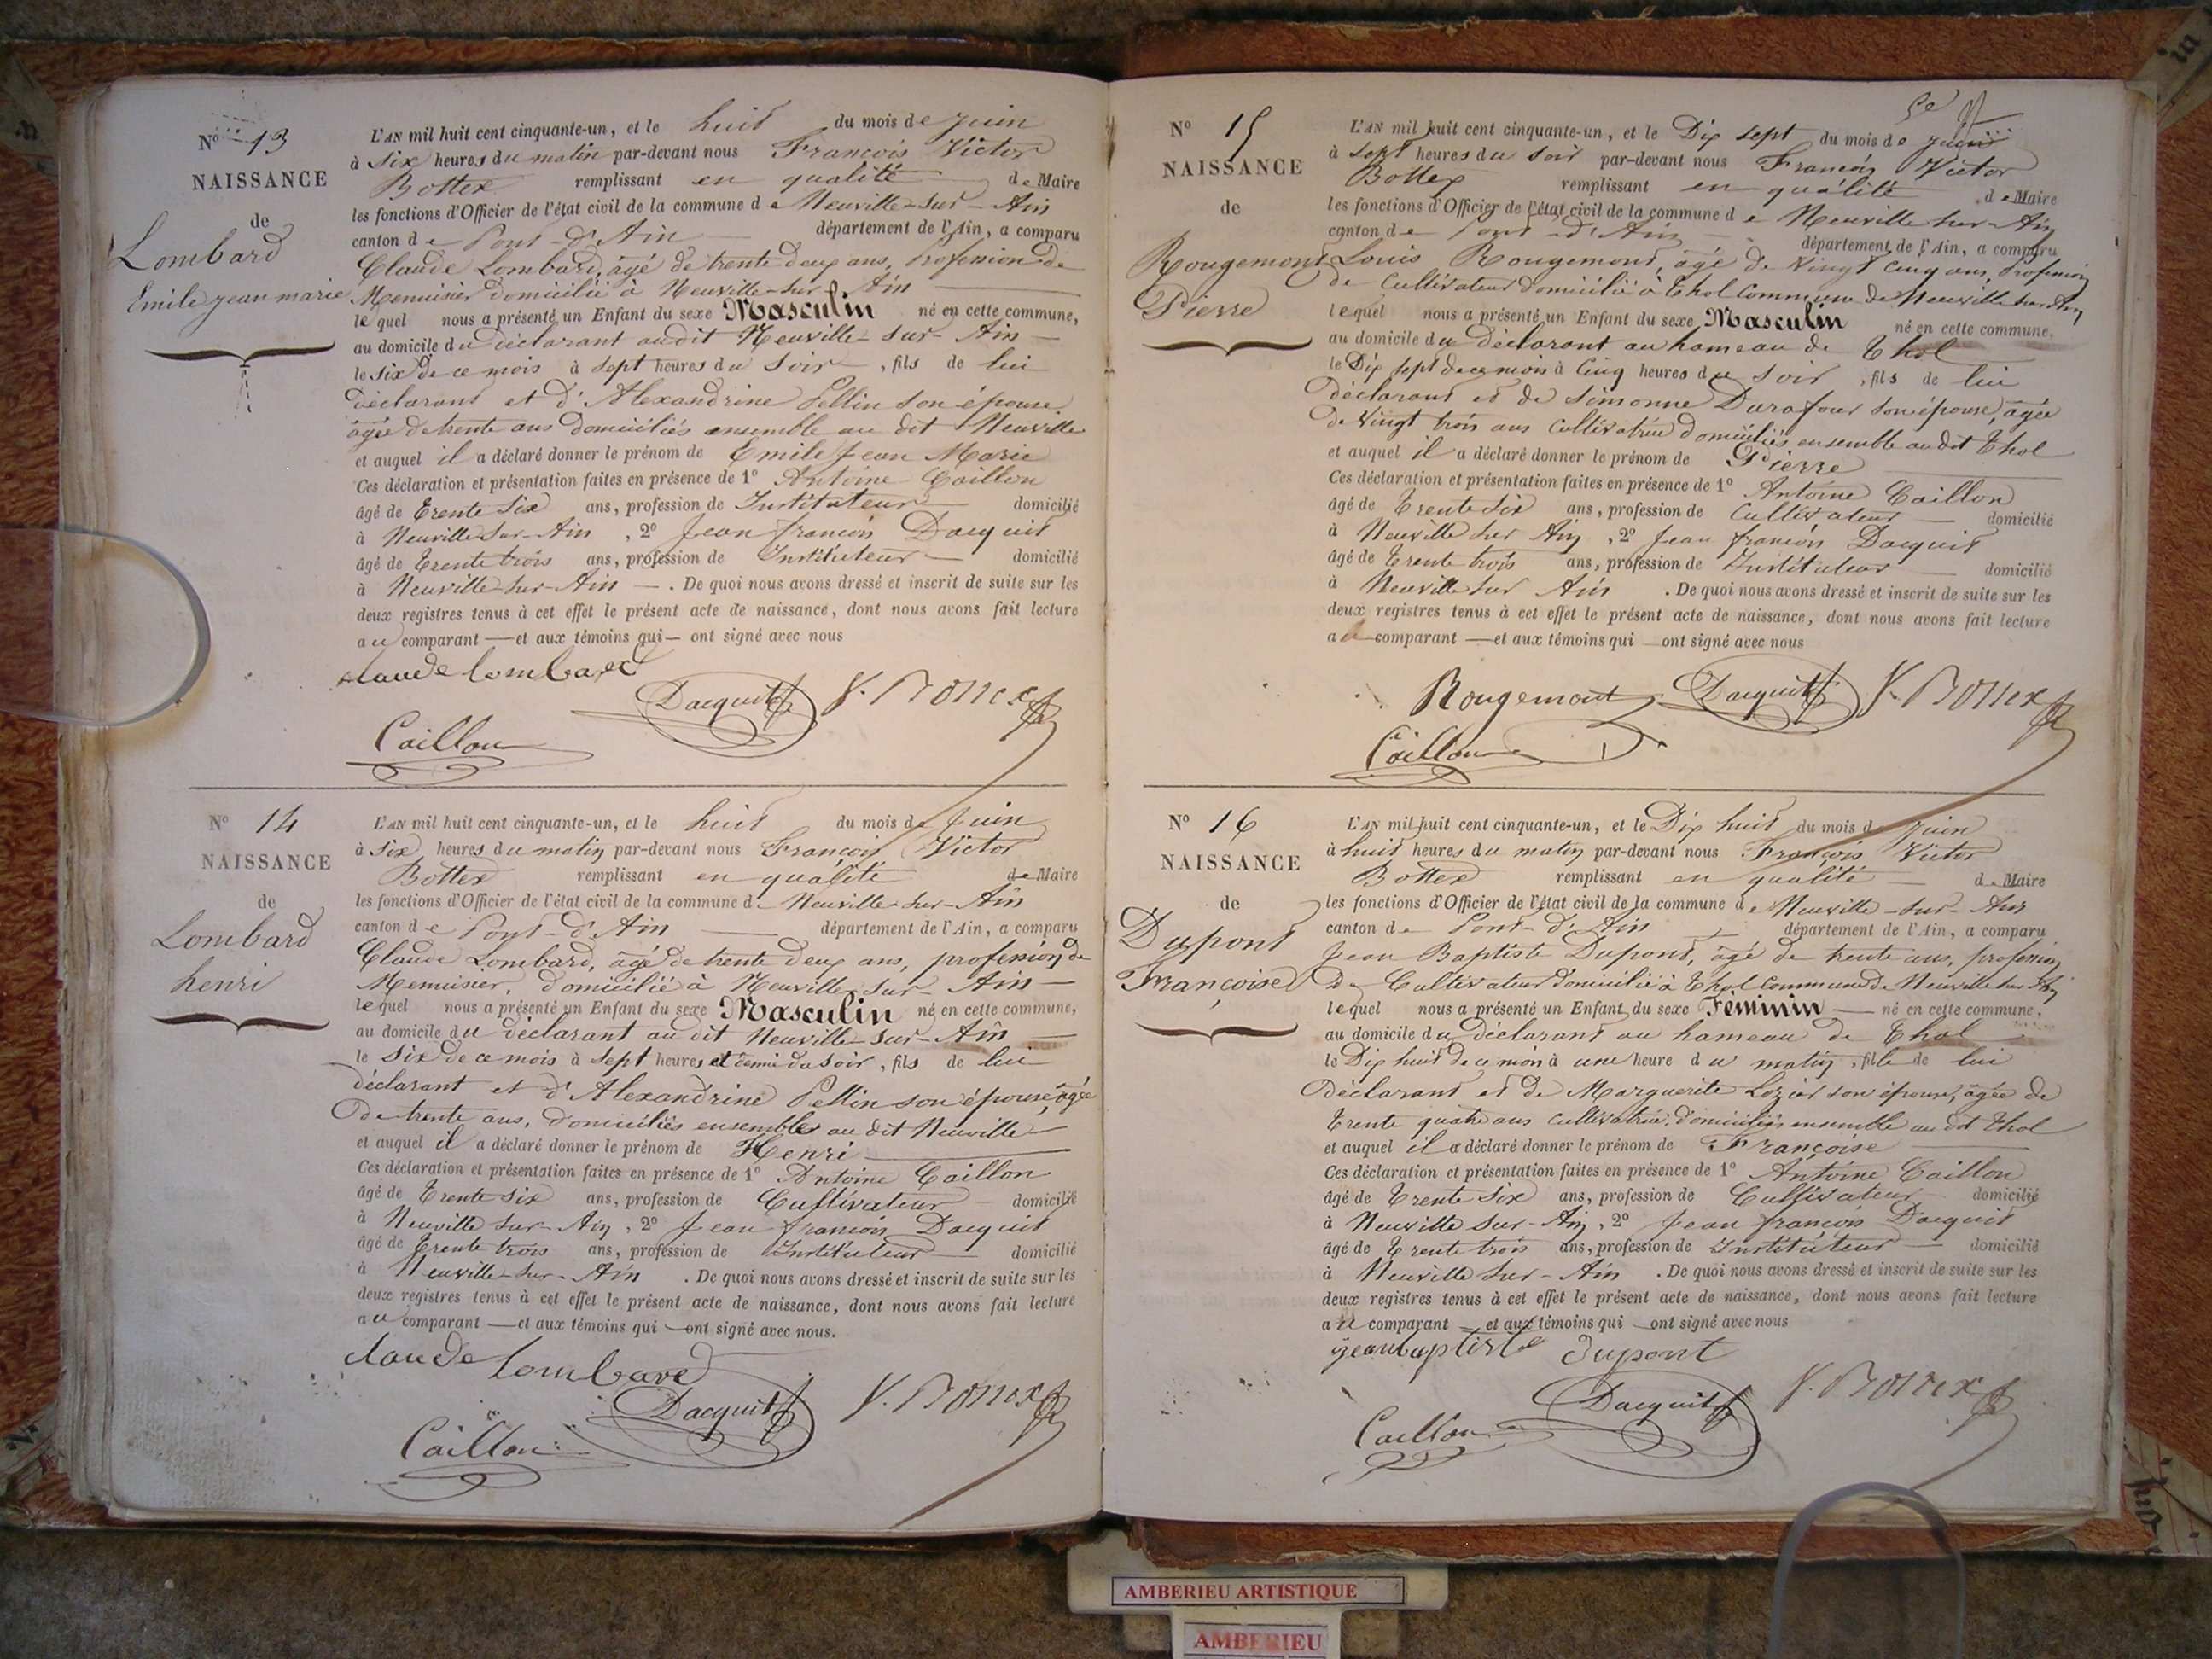 No 13
NAISSANCE
de
Lombard
Emile jean marie
L'AN mil huit cent cinquante-un, et le huit du mois de Juin
à six heures du matin par-devant nous François Victor
Bottex remplissant en qualité de Maire
les fonctions d'Officier de l'état civil de la commune de Neuville-sur-Ain
canton de Pont-d'Ain département de l'Ain, a comparu
Claude Lombard, âgé de trente deux ans, Profession de
Menuisier domicilié à Neuville-sur-Ain
lequel nous a présenté un Enfant du sexe Masculin né en cette commune,
au domicile du déclarant audit Neuville-sur-Ain
le six de ce mois à sept heures du soir, fils de lui
déclarant et d'Alexandrine Pellin son épouse
âgée de trente ans domiciliés ensemble au dit Neuville
et auquel il a déclaré donner le prénom de Emile Jean Marie
Ces déclaration et présentation faites en présence de 1o Antoine Caillon
âgé de Trente Six ans, profession de Instituteur domicilié
à Neuville-sur-Ain, 2o Jean françois Dacquit
âgé de Trente trois ans, profession de Instituteur domicilié
à Neuville-sur-Ain. De quoi nous avons dressé et inscrit de suite sur les
deux registres tenus à cet effet le présent acte de naissance, dont nous avons fait lecture
au comparant et aux témoins qui ont signé avec nous
claude lombard
Dacquit V. Bottex
Caillon
No 14
NAISSANCE
de
Lombard
henri
L'AN mil huit cent cinquante-un, et le huit du mois de Juin
à Six heures du matin par-devant nous François Victor
Bottex remplissant en qualité de Maire
les fonctions d'Officier de l'état civil de la commune de Neuville-sur-Ain
canton de Pont-d'Ain département de l'Ain, a comparu
Claude Lombard, âgé de trente deux ans, profession de
Menuisier, domicilié à Neuville-sur-Ain
lequel nous a présenté un Enfant du sexe Masculin né en cette commune,
au domicile du déclarant au dit Neuville-sur-Ain
le Six de ce mois à sept heures et demie du soir, fils de lui
déclarant et d'Alexandrine Pellin son épouse, âgée
de trente ans, domiciliés ensembles au dit Neuville
et auquel il a déclaré donner le prénom de Henri
Ces déclaration et présentation faites en présence de 1o Antoine Caillon
âgé de Trente six ans, profession de Cultivateur domicilié
à Neuville sur-Ain, 2o Jean françois Dacquit
âgé de Trente trois ans, profession de Instituteur domicilié
à Neuville-sur-Ain. De quoi nous avons dressé et inscrit de suite sur les
deux registres tenus à cet effet le présent acte de naissance, dont nous avons fait lecture
au comparant et aux témoins qui ont signé avec nous.
claude lombard
Dacquit V. Bottex
Caillon
No 15
NAISSANCE
de
Rougemont
Pierre
L'AN mil huit cent cinquante-un, et le Dix sept du mois de Juin
à Sept heures du soir par-devant nous François Victor
Bottex remplissant en qualité de Maire
les fonctions d'Officier de l'état civil de la commune de Neuville sur-Ain
canton de Pont-d'Ain département de l'Ain, a comparu
Louis Rougemont, âgé de Vingt cinq ans, profession
de Cultivateur domicilié à Thol Commune de Neuville sur-Ain
lequel nous a présenté un Enfant du sexe Masculin né en cette commune,
au domicile du déclarant au hameau de Thol
le Dix sept de ce mois à Cinq heures du soir, fils de lui
déclarant et de Simonne Durafour son épouse, âgée
de Vingt trois ans cultivatrice domiciliés ensemble au dit Thol
et auquel il a déclaré donner le prénom de Pierre
Ces déclaration et présentation faites en présence de 1o Antoine Caillon
âgé de Trente Six ans, profession de Cultivateur domicilié
à Neuville sur Ain, 2o Jean françois Dacquit
âgé de Trente trois ans, profession de Instituteur domicilié
à Neuville sur Ain. De quoi nous avons dressé et inscrit de suite sur les
deux registres tenus à cet effet le présent acte de naissance, dont nous avons fait lecture
au comparant et aux témoins qui ont signé avec nous
Rougemont Dacquit V. Bottex
Caillon
No 16
NAISSANCE
de
Dupont
Françoise
L'AN mil huit cent cinquante-un, et le Dix huit du mois de Juin
à huit heures du matin par-devant nous François Victor
Bottex remplissant en qualité de Maire
les fonctions d'Officier de l'état civil de la commune de Neuville-sur-Ain
canton de Pont-d'Ain département de l'Ain, a comparu
Jean Baptiste Dupont, âgé de trente ans, profession
de Cultivateur domicilié à Thol Commune de Neuville sur Ain
lequel nous a présenté un Enfant du sexe Féminin né en cette commune,
au domicile du déclarant au hameau de Thol
le Dix huit de ce mois à une heure du matin, fille de lui
déclarant et de Marguerite Lozier son épouse, âgée de
Trente quatre ans cultivatrice, domiciliés ensemble au dit Thol
et auquel il a déclaré donner le prénom de Françoise
Ces déclaration et présentation faites en présence de 1o Antoine Caillon
âgé de Trente Six ans, profession de Cultivateur domicilié
à Neuville sur-Ain, 2o Jean françois Dacquit
âgé de Trente trois ans, profession de Instituteur domicilié
à Neuville sur-Ain. De quoi nous avons dressé et inscrit de suite sur les
deux registres tenus à cet effet le présent acte de naissance, dont nous avons fait lecture
au comparant et aux témoins qui ont signé avec nous
jean baptiste dupont
Dacquit V. Bottex
Caillon
AMBERIEU ARTISTIQUE
AMBERIEU